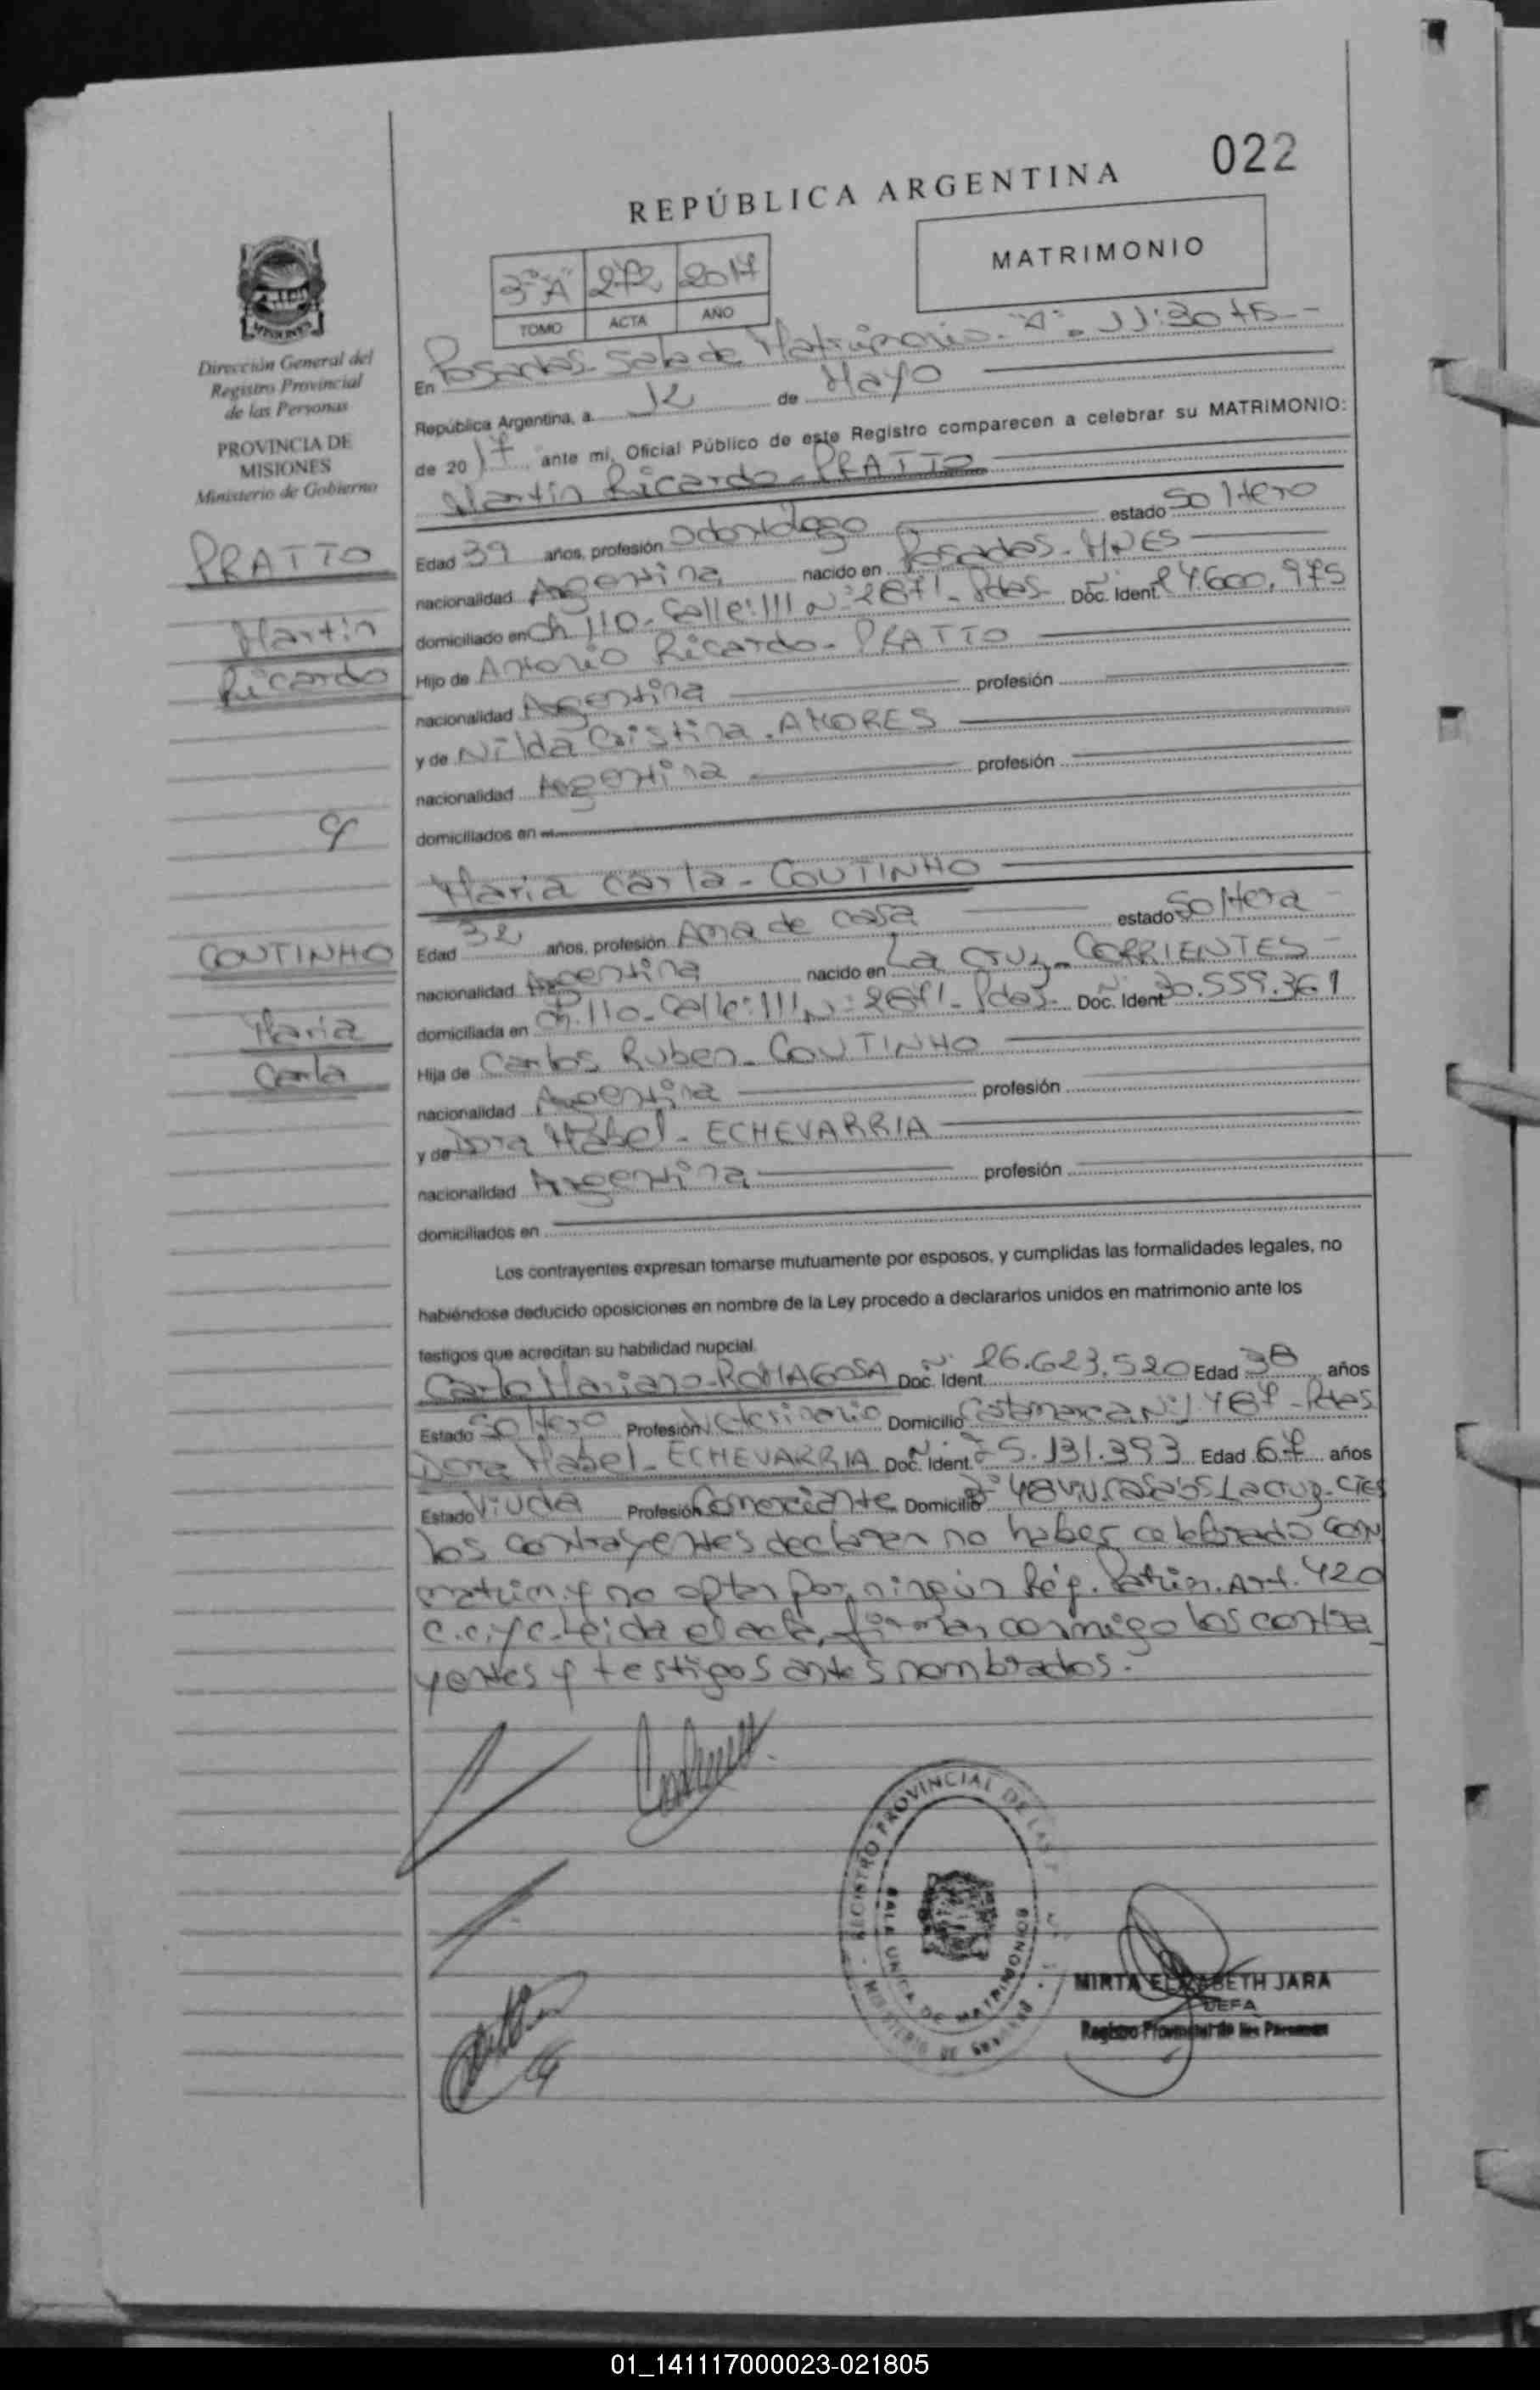 022
REPÚBLICA ARGENTINA
MATRIMONIO
3º "A" 272 2017
TOMO ACTA AÑO
Dirección General del
Registro Provincial
de las Personas
PROVINCIA DE
MISIONES
Ministerio de Gobierno
En Posadas - Sala de Matrimonio - "A" - 11:30 HS - -
República Argentina, a 12 de Mayo
de 2017 ante mí, Oficial Público de este Registro comparecen a celebrar su MATRIMONIO:
Martín Ricardo - PRATTO
PRATTO
Martín
Ricardo
Edad 39 años, profesión Odontólogo estado Soltero
nacionalidad Argentina nacido en Posadas - MNES
domiciliado en Ch 110 - Calle: 111 Nº 2871 - Pdas - Doc. Ident. Nº 4.600.975
Hijo de Antonio Ricardo - PRATTO
nacionalidad Argentina profesión
y de Nilda Cristina - AMORES
nacionalidad Argentina profesión
domiciliados en
y
Maria Carla - COUTINHO
COUTINHO
Maria
Carla
Edad 32 años, profesión Ama de casa estado Soltera -
nacionalidad Argentina nacido en La Cruz - CORRIENTES -
domiciliada en Ch. 110 - Calle: 111 Nº 2871 - Pdas - Doc. Ident. Nº 30.559.361
Hija de Carlos Ruben - COUTINHO
nacionalidad Argentina profesión
y de Dora Mabel - ECHEVARRIA
nacionalidad Argentina profesión
domiciliados en
Los contrayentes expresan tomarse mutuamente por esposos, y cumplidas las formalidades legales, no
habiéndose deducido oposiciones en nombre de la Ley procedo a declararlos unidos en matrimonio ante los
testigos que acreditan su habilidad nupcial.
Carlo Mariano - ROMAGOSA Doc. Ident. Nº 26.623.520 Edad 38 años
Estado Soltero Profesión Veterinario Domicilio Catamarca Nº 1787 - Pdas
Dora Mabel - ECHEVARRIA Doc. Ident. Nº 5.131.393 Edad 67 años
Estado Viuda Profesión Comerciante Domicilio 48 Viv. La Cruz - Ctes
los contrayentes declaran no haber celebrado con
matrim. y no optar por ningún Rég. Patrim. Art. 420
C.C. y C. Leída el acta, firman conmigo los contra
yentes y testigos antes nombrados.
REGISTRO PROVINCIAL DE LAS
SALA UNICA DE MATRIMONIOS
MINISTERIO DE GOBIERNO
MIRTA ELIZABETH JARA
JEFA
Registro Provincial de las Personas
01_141117000023-021805